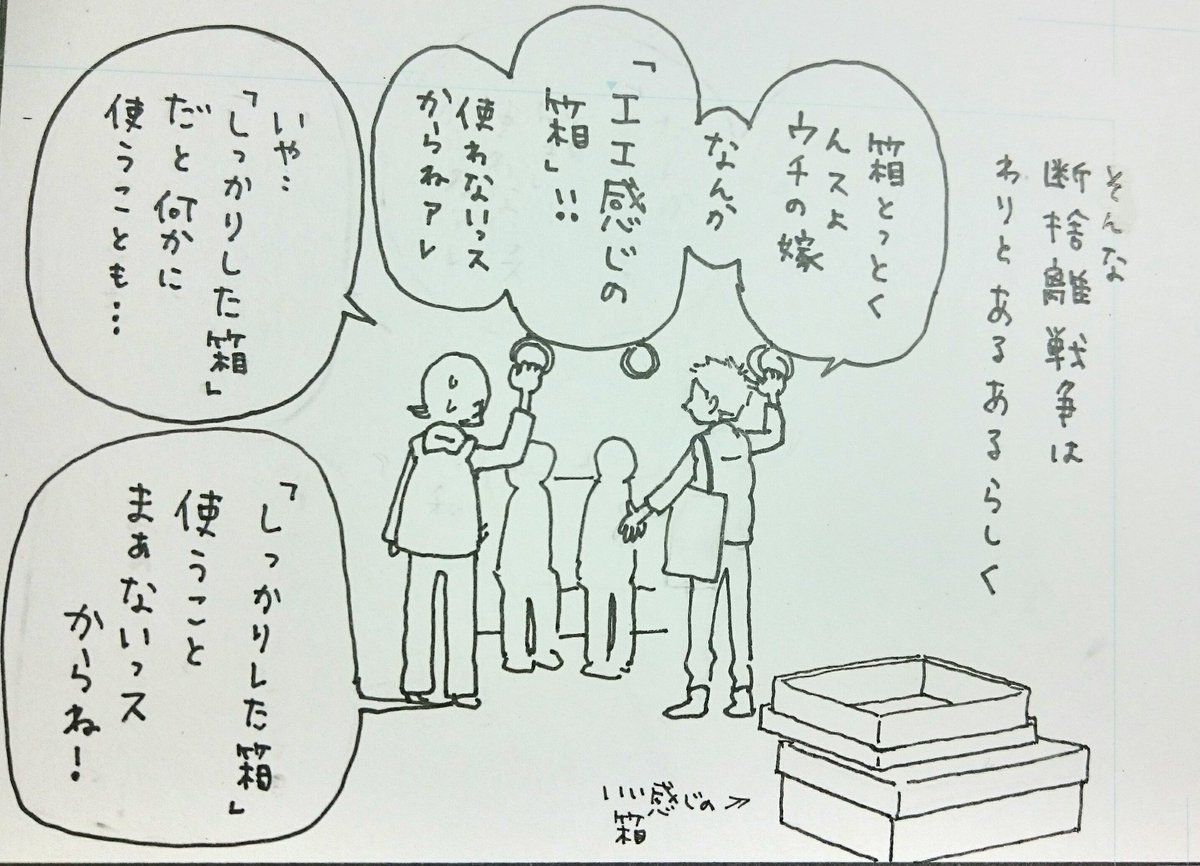 そんな
断捨離戦争は
わりとあるあるらしく
箱とっとく
んスよ
ウチの嫁
なんか
「エエ感じの
箱」!!
使わないっス
からねアレ
いや…
「しっかりした箱」
だと何かに
使うことも…
「しっかりした箱」
使うこと
まぁないっス
からね!
いい感じの
箱